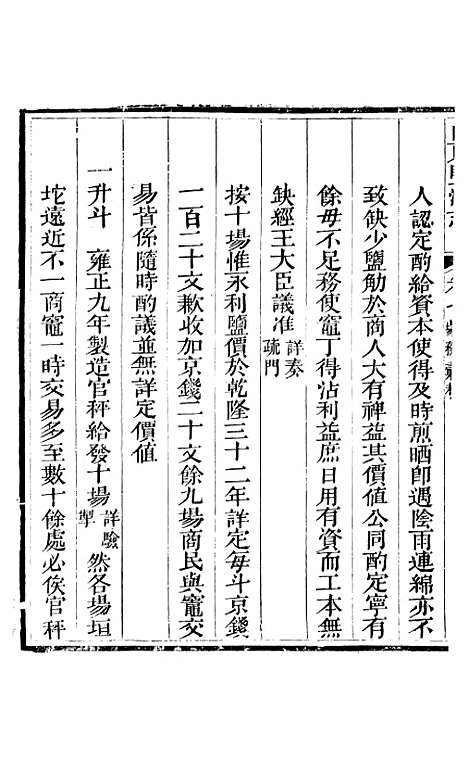 人認定酌給資本使得及時煎晒卽遇陰雨連綿亦不
致缺少鹽觔於商人大有裨益其價値公同酌定寧有
餘毋不足務使竈丁得沾利益庶日用有資而工本無
缺經王大臣議准詳奏疏門
按十場惟永利鹽價於乾隆三十二年詳定每斗京錢
一百二十文歉收加京錢二十文餘九場商民與竈交
易皆係隨時酌議並無詳定價値
一升斗　雍正九年製造官秤給發十場詳驗掣然各場垣
坨遠近不一商竈一時交易多至數十餘處必俟官秤